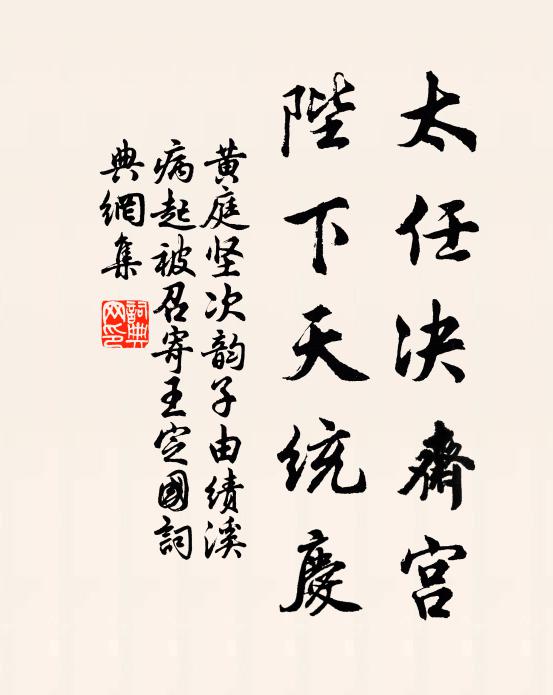 太任决斋宫
陛下天统庆
黄庭坚次韵子由绩溪
病起被召寄王定國詞
典網集
詞典
网印